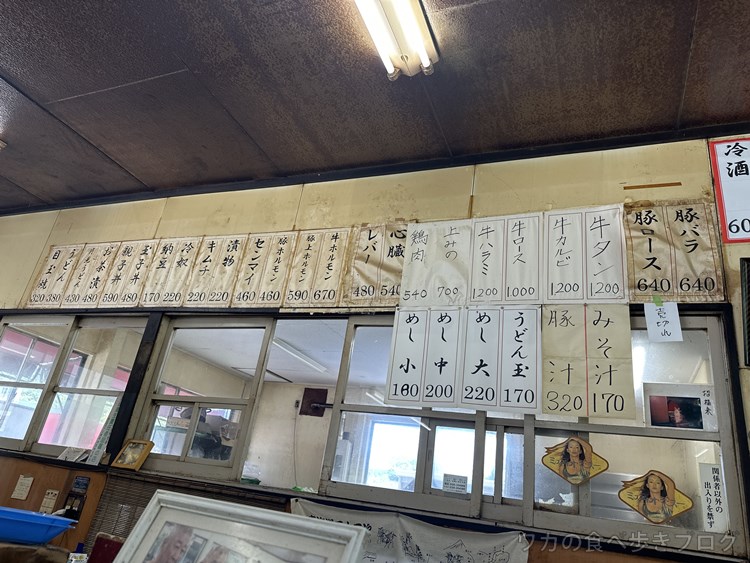 冷酒
60
豚バラ
640
豚ロース
640
牛タン
1200
牛カルビ
1200
牛ロース
1000
牛ハラミ
1200
上みの
700
鶏肉
540
心臓
540
レバー
480
牛ホルモン
670
豚上ホルモン
590
豚ホルモン
460
センマイ
460
漬物
220
キムチ
220
冷奴
220
納豆
170
玉子丼
480
親子丼
590
お茶漬
480
430
うどん
380
目玉焼
320
売切れ
みそ汁
170
豚汁
320
うどん玉
170
めし大
220
めし中
200
めし小
160
関係者以外の
出入りを禁ず
ウカの食べ歩きブログ